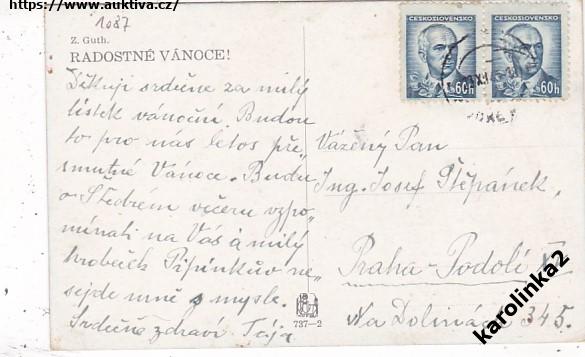 https://www.auktiva.cz/
1087
Z. Guth.
RADOSTNÉ VÁNOCE!
ČESKOSLOVENSKO
ČESKOSLOVENSKO
60h
60h
Děkuji srdečně za milý
lístek vánoční. Budou
to pro nás letos pře„
smutné Vánoce. Budu
o Štědrém večeru vzpo„
mínati na Vás a milý
hrobeček Pipinkův ne„
sejde mně s mysle.
Srdečně zdraví
Vážený Pan
Ing. Josef Štěpánek,
Praha-Podolí
Na Dolinách 345.
737—2
karolinka2